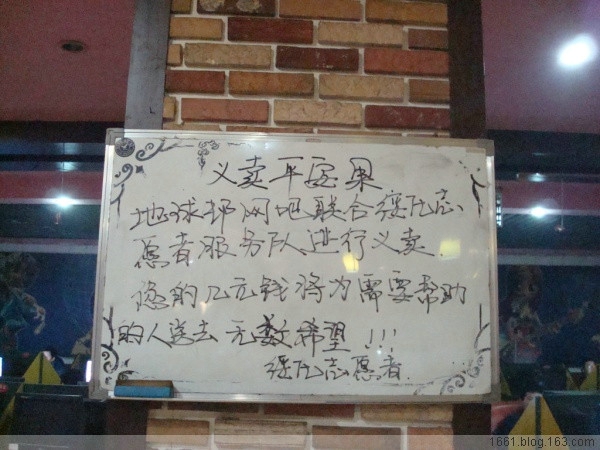 义卖平安果
地球村网吧联合红瓦志
愿者服务队进行义卖.
您的几元钱将为需要帮助
的人送去无数希望!!!
红瓦志愿者.
1661.blog.163.com